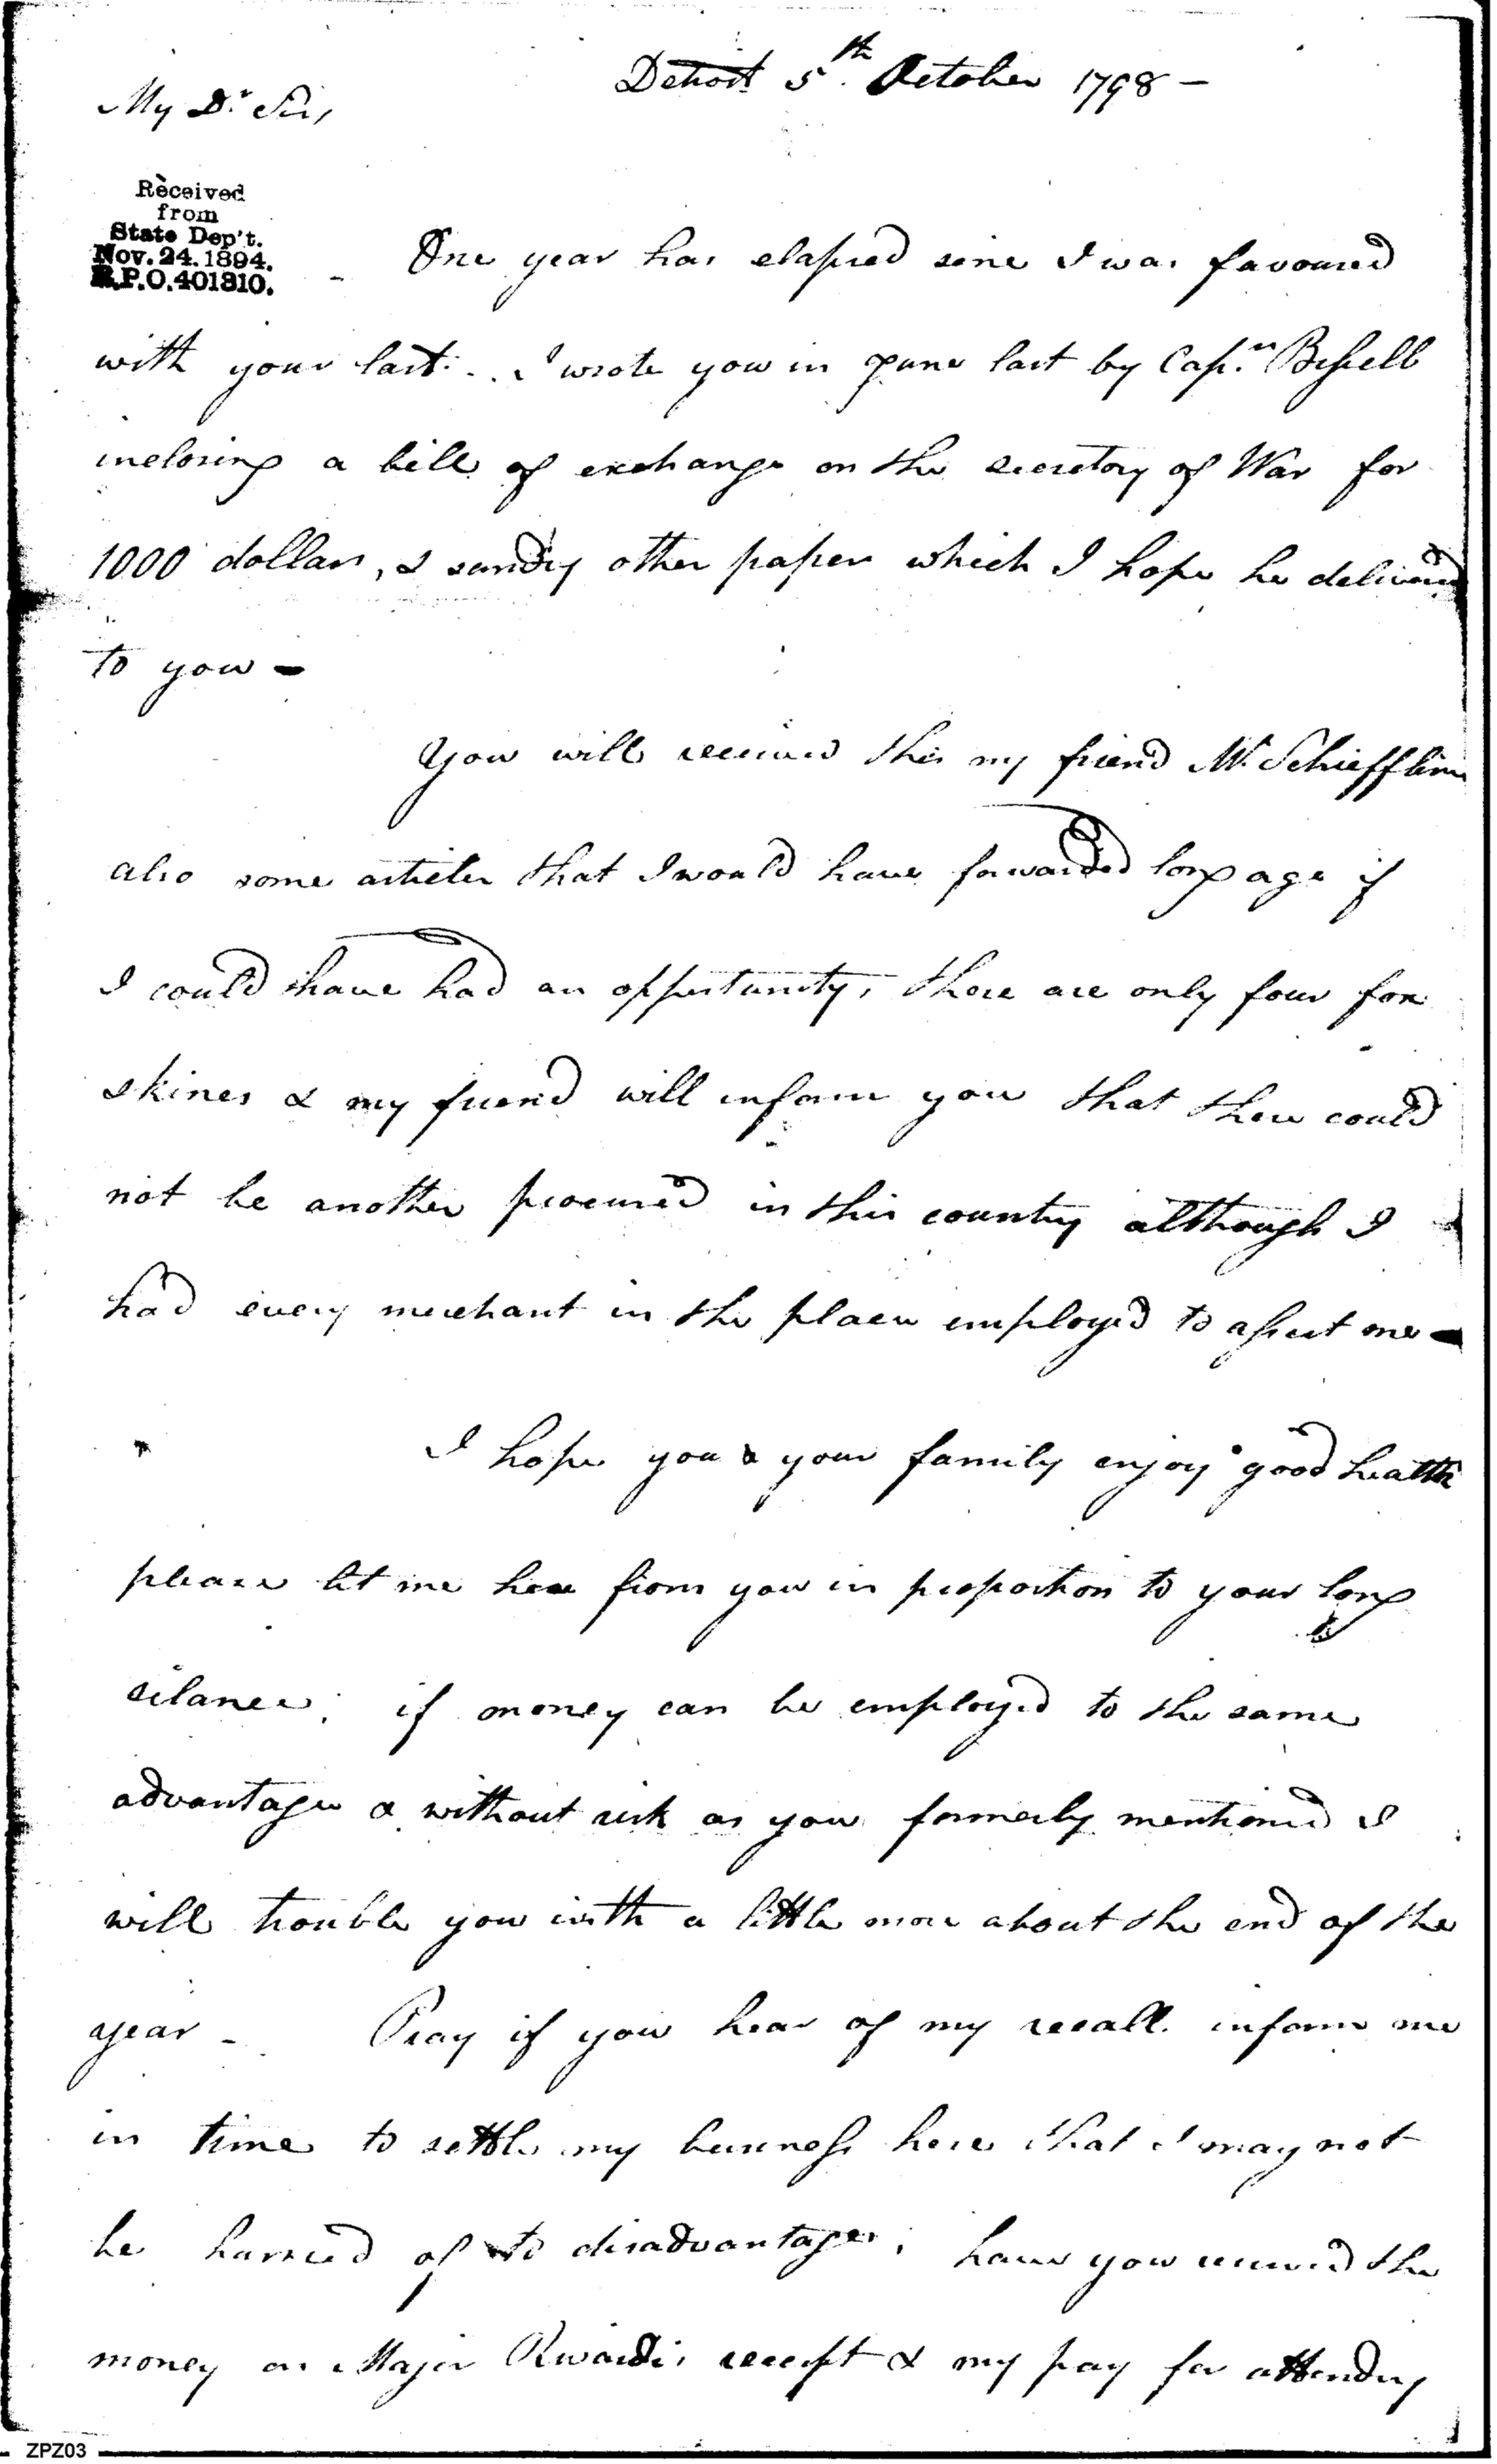 Detroit 5th October 1798 -
My Dr Sir,
Received
from
State Dep't.
Nov. 24. 1894.
R.P.O. 401310.
- One year has elapsed sine I was favoured
with your last. . I wrote you in June last by Capn Bissell
inclosing a bill of exchange on the secretory of War for
1000 dollars, & sundry other papers which I hope he delivered
to you -
You will received this my friend Mr. Schiefflin
also some articles that I would have forwarded long ago if
I could have had an oppertunity, there are only four fox
skines & my friend will inform you that there could
not be another procured in this country although I
had every merchant in the place employed to assist me -
I hope you & your family enjoy good health
please let me hear from you in proportion to your long
silance; if money can be employed to the same
advantage & without risk as you formerly mentioned I
will trouble you with a little more about the end of the
year - Pray if you hear of my recall inform me
in time to settle my business here that I may not
be hurried of to disadvantage; have you received the
money on Major Rivardis receipt & my pay for attending
ZPZ03